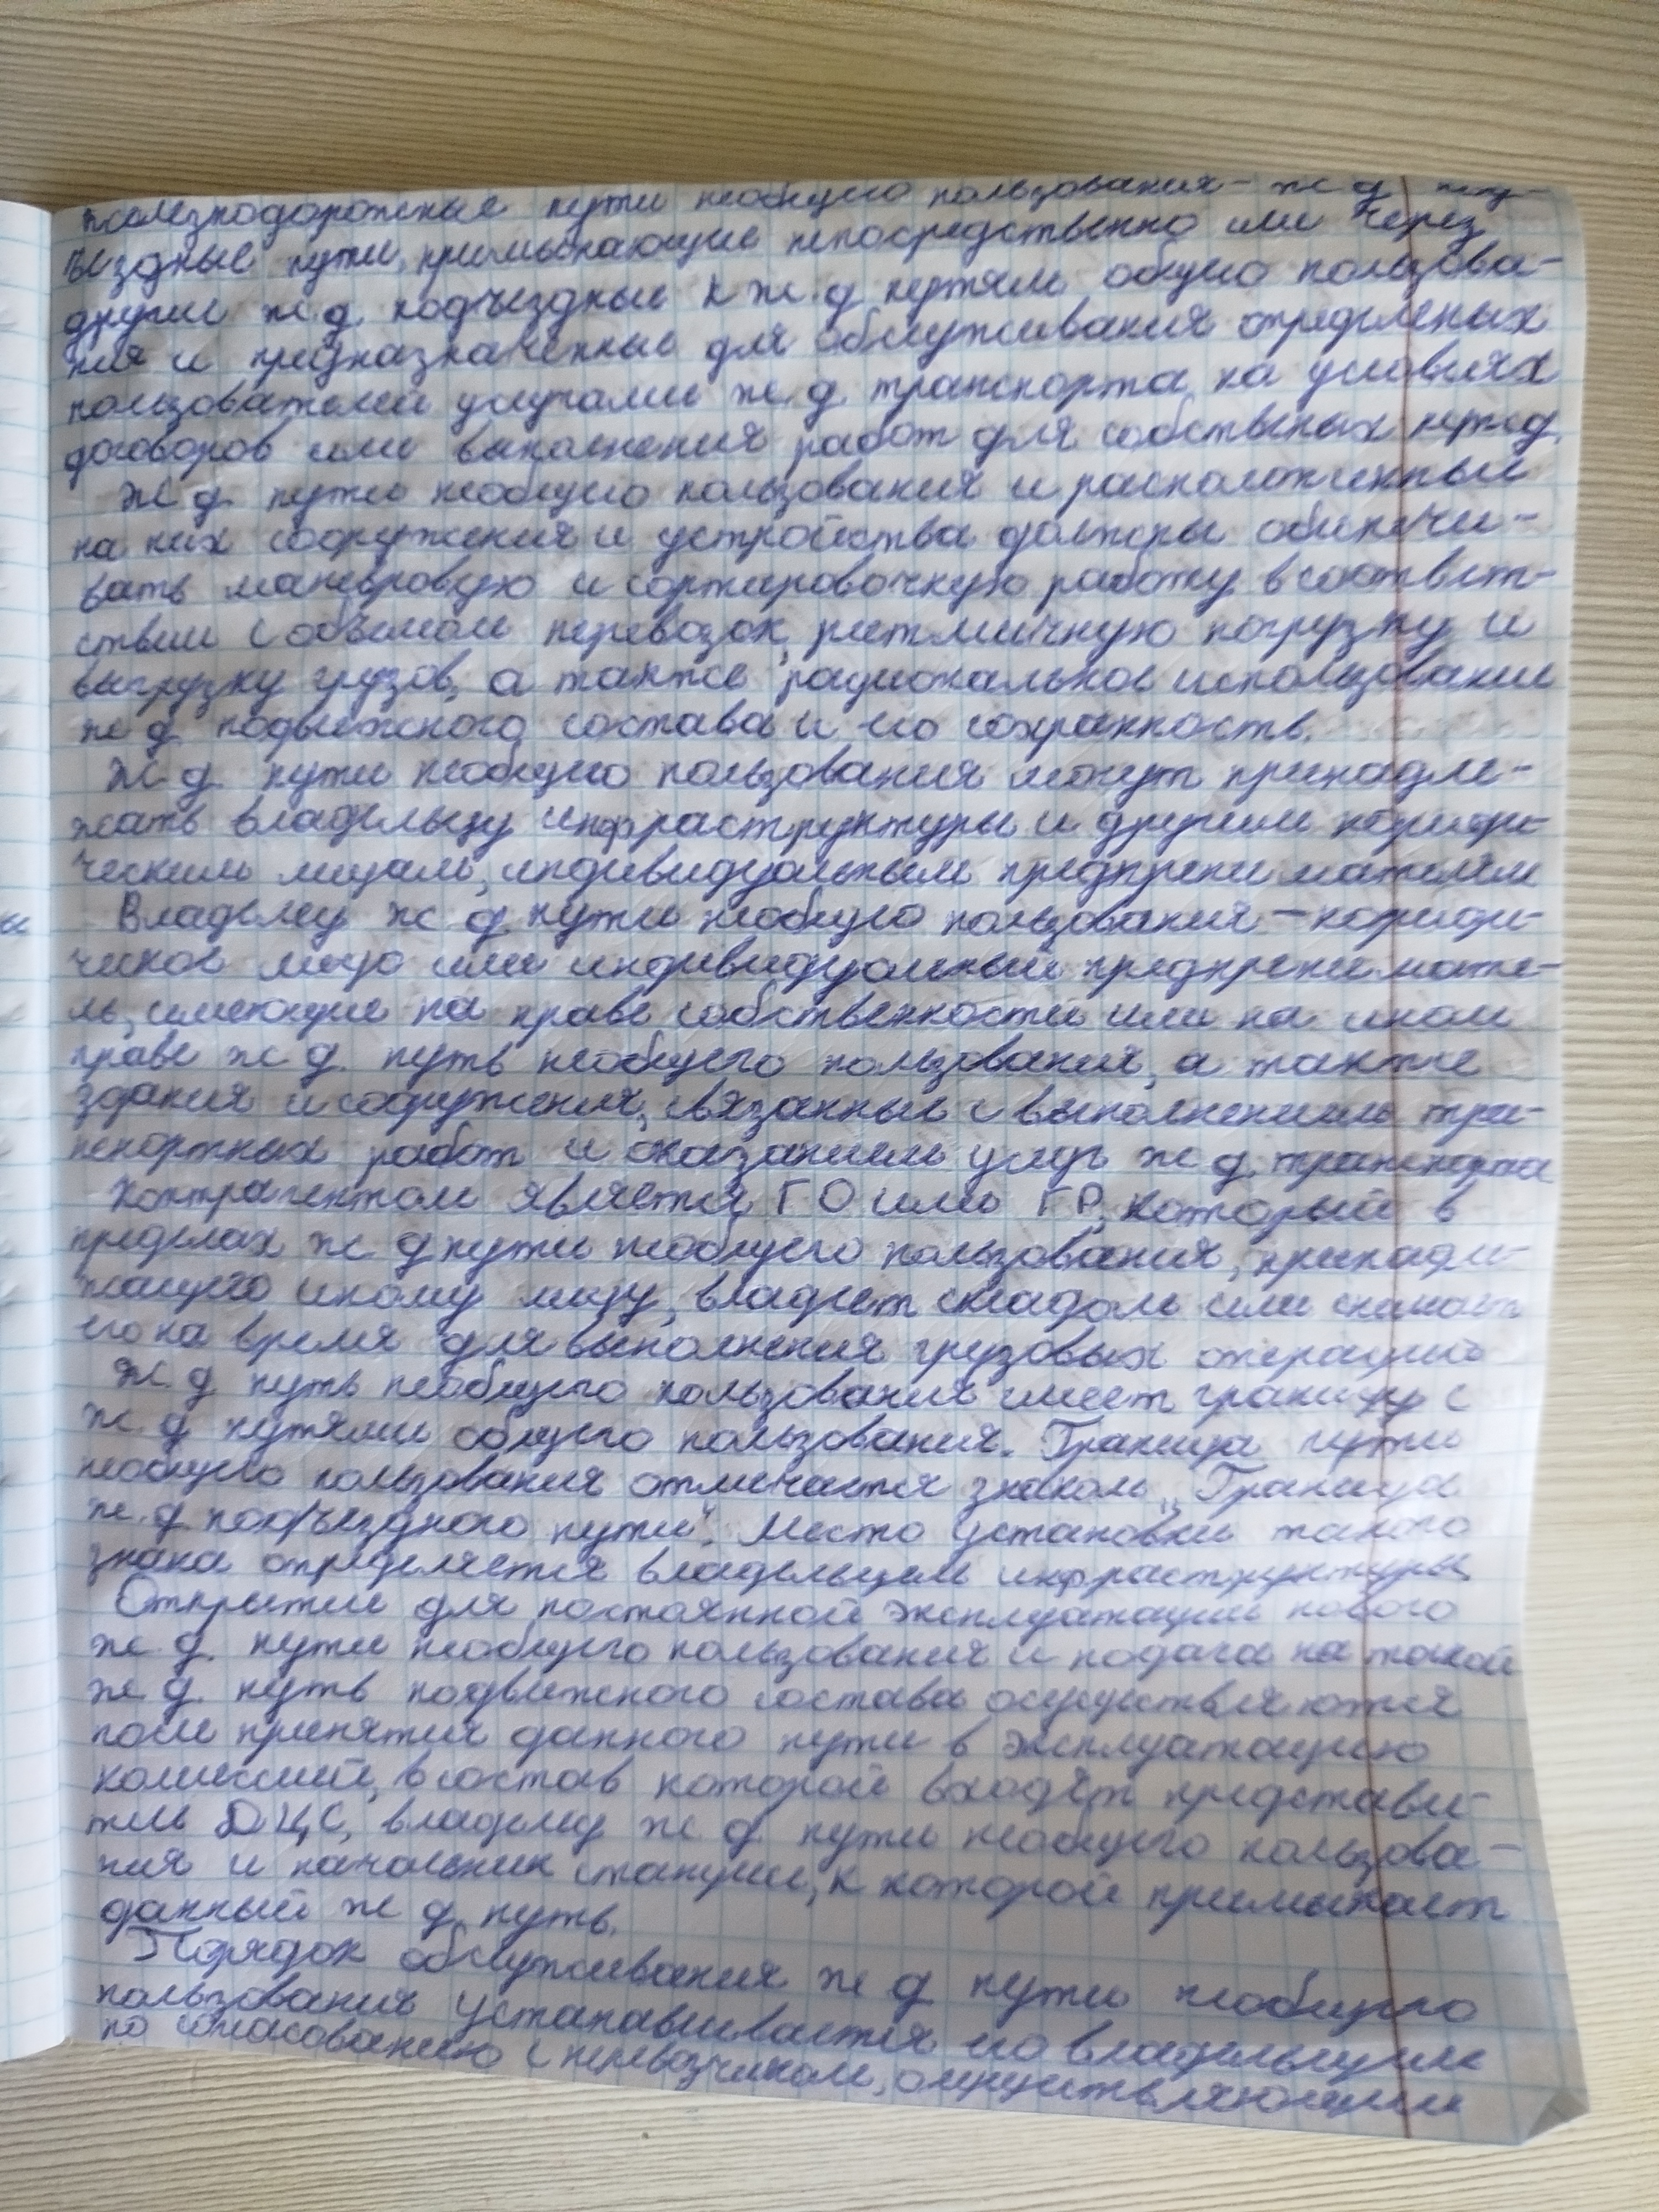 железнодорожные пути необщего пользования - ж д под-
ъездные пути, примыкающие непосредственно или через
другие ж.д. подъездные к ж.д путям общего пользова-
ния и предназначенные для обслуживания определеных
пользователей услугами ж.д. транспорта на условиях
договоров или выполнения работ для собственых нужд.
Ж д. пути необщего пользования и расположенные
на них сооружения и устройства должны обеспечи-
вать маневровую и сортировочную работу в соответ-
ствии с объемом перевозок, ритмичную погрузку и
выгрузку грузов, а также рациональное использование
ж д. подвижного состава и его сохранность.
Ж.д. пути необщего пользования могут принадле-
жать владельцу инфраструктуры и другим юриди-
ческим лицам, индивидуальным предпренимателям
Владелец ж д. пути необщего пользования - юриди-
ческое лицо или индивидуальный предпренимате-
ль, имеющие на праве собственности или на ином
праве ж д. путь необщего пользования, а также
здания и сооружения, связанные с выполнением тра-
нспортных работ и оказанием услуг ж д. транспорта
Контрагентом является ГО или ГР, который в
пределах ж д пути необщего пользования, принадле-
жащего иному лицу, владеет складом или снимает
его на время для выполнения грузовых операций
Ж.д путь необщего пользования имеет границу с
ж.д путями общего пользования. Граница пути
необщего пользования отличается знаком „Граница
ж.д. подъездного пути". Место установки такого
знака определяется владельцем инфраструктуры
Открытие для постоянной эксплуатации нового
ж.д. пути необщего пользования и подача на такой
ж.д. путь подвижного состава осуществляются
после принятия данного пути в эксплуатацию
комиссией, в состав которой входят представи-
тель ДЦС, владелец ж д пути необщего пользова-
ния и начальник станции, к которой примыкает
данный ж д. путь.
Порядок обслуживания ж д пути необщего
пользования устанавливается его владельцем
по согласованию с перевозчиком, осуществляющим